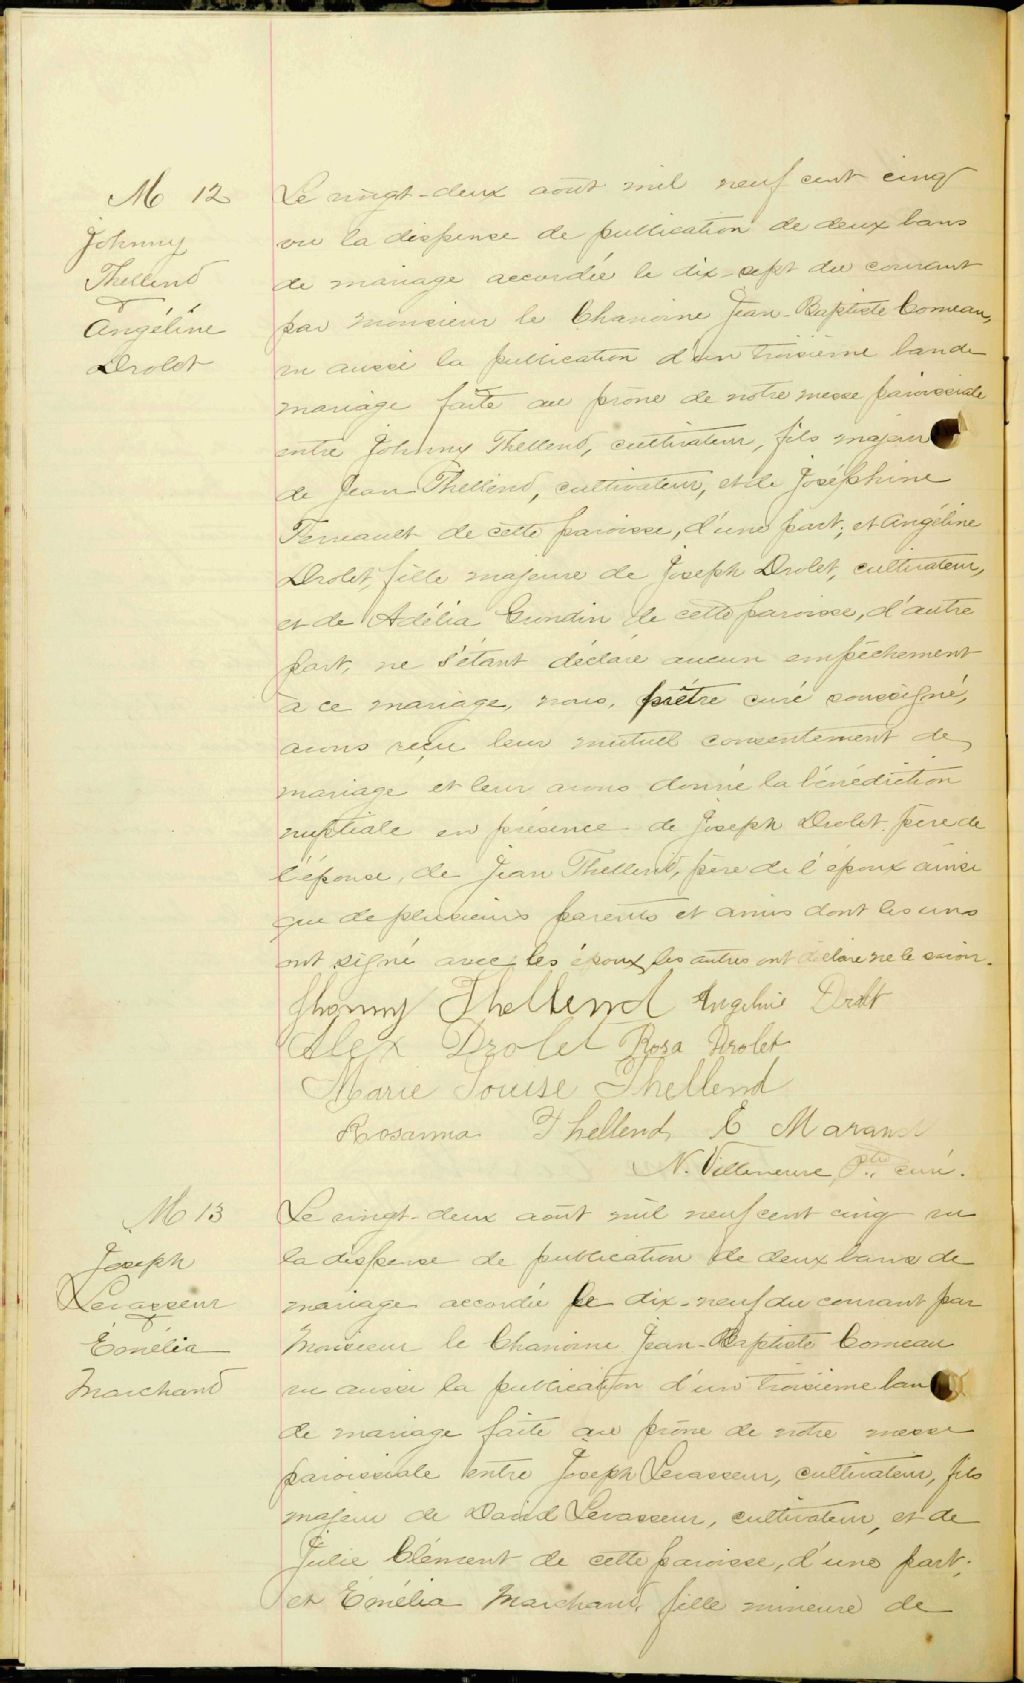 M 12
Johnny
Thellend
&
Angéline
Drolet
Le vingt-deux août mil neuf cent cinq
vu la dispense de publication de deux bans
de mariage accordée le dix-sept du courant
par monsieur le Chanoine Jean-Baptiste Comeau,
vu aussi la publication d'un troisième ban de
mariage faite au prône de notre messe paroissiale
entre Johnny Thellend, cultivateur, fils majeur
de Jean Thellend, cultivateur, et de Joséphine
Ferreault de cette paroisse, d'une part; et Angéline
Drolet, fille majeure de Joseph Drolet, cultivateur,
et de Adélia Grondin de cette paroisse, d'autre
part, ne s'étant déclaré aucun empêchement
à ce mariage, nous, prêtre curé soussigné,
avons reçu leur mutuel consentement de
mariage et leur avons donné la bénédiction
nuptiale en présence de Joseph Drolet père de
l'épouse, de Jean Thellend, père de l'époux ainsi
que de plusieurs parents et amis dont les uns
ont signé avec les époux les autres ont déclaré ne le savoir.
Jhonny Thellend Angeline Drolt
Alex Drolet Rosa Drolet
Marie Louise Thellend
Rosanna Thellend E Marand
N. Villeneuve, Ptre curé.
M 13
Joseph
Levasseur
&
Émélia
Marchand
Le vingt-deux août mil neuf cent cinq vu
la dispense de publication de deux bans de
mariage accordée le dix-neuf du courant par
Monsieur le Chanoine Jean-Baptiste Comeau
vu aussi la publication d'un troisième ban
de mariage faite au prône de notre messe
paroissiale entre Joseph Levasseur, cultivateur, fils
majeur de David Levasseur, cultivateur, et de
Julie Clément de cette paroisse, d'une part;
et Émélia Marchand, fille mineure de